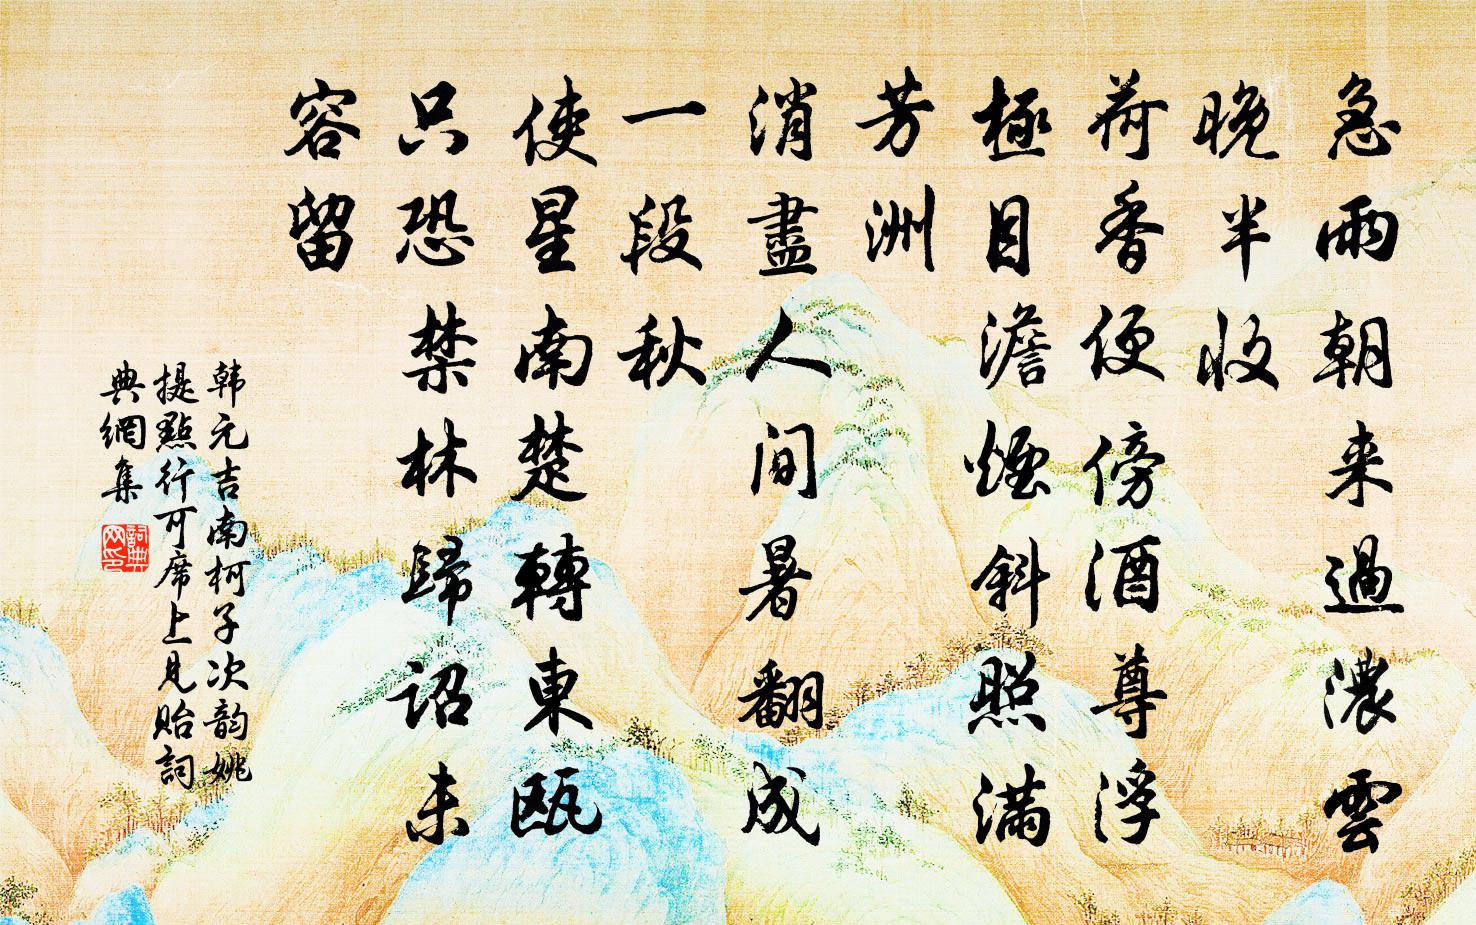 急雨朝来過濃雲
晚半收
荷香便傍酒尊浮
極目澹煙斜照滿
芳洲
消盡人間暑翻成
一段秋
使星南楚轉東甌
只恐禁林歸詔未
容留
韩元吉南柯子次韵姚
提點行可席上見貽詞
典網集
詞典
网